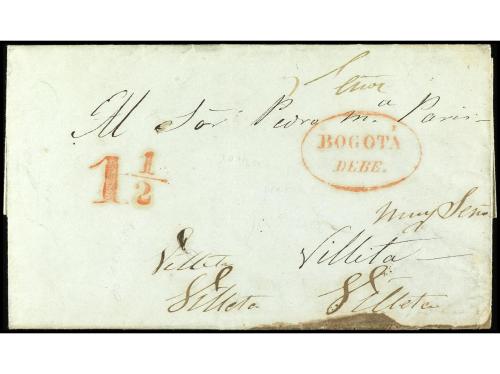 Señor
Al Sor Pedro M.a Paris
BOGOTÁ
DEBE.
1 1/2
muy Seño
Villeta Villita
Villeta Villeta